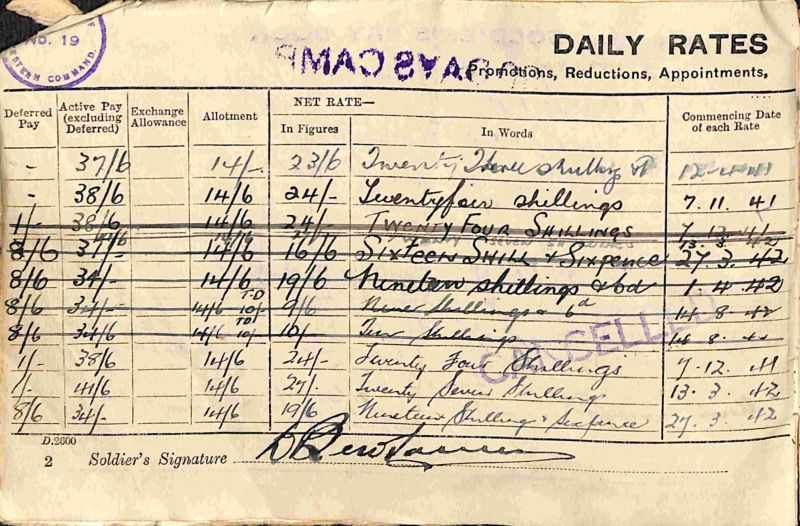 NO. 19
WESTERN COMMAND.
DAILY RATES
GRAYS CAMP
Promotions, Reductions, Appointments,
Deferred Pay | Active Pay (excluding Deferred) | Exchange Allowance | Allotment | NET RATE— In Figures | In Words | Commencing Date of each Rate
- 37/6 14/- 23/6 Twenty Three shillings
- 38/6 14/6 24/- Twentyfour shillings 7. 11. 41
1/- 38/6 14/6 24/- TWENTY FOUR SHILLINGS 7. 12. 41
13. 3. 42
8/6 37/- 14/6 16/6 SIXTEEN SHILL & SIXPENCE 27. 3. 42
8/6 34/- 14/6 19/6 Nineteen shillings & 6d 1. 4. 42
8/6 34/- 14/6 T.D 10/- 9/6 Nine Shillings & 6d 14. 8. 42
8/6 34/6 14/6 TD 10/- 10/- Ten Shillings 14. 8. 42
CANCELLED
1/- 38/6 14/6 24/- Twenty Four Shillings 7. 12. 41
1/- 41/6 14/6 27/- Twenty Seven Shillings 13. 3. 42
8/6 34/- 14/6 19/6 Nineteen Shillings & Sixpence 27. 3. 42
D.2600
2 Soldier's Signature